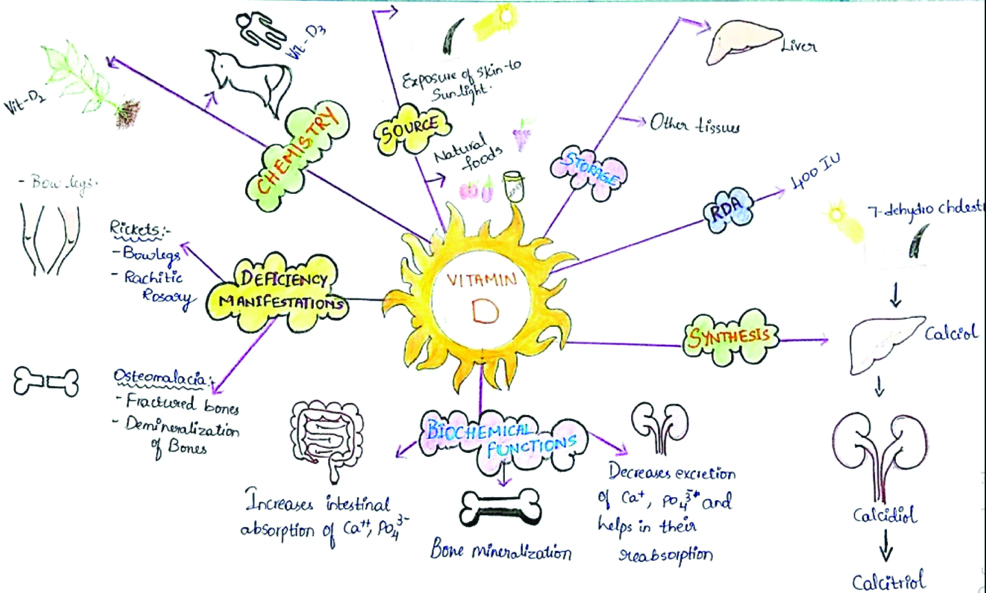 VITAMIN
D
CHEMISTRY
Vit-D2
Vit-D3
SOURCE
Exposure of skin to
Sunlight.
Natural
foods
STORAGE
Liver
Other tissues
RDA
400 IU
SYNTHESIS
7-dehydro cholest
Calciol
Calcidiol
Calcitriol
BIOCHEMICAL
FUNCTIONS
Increases intestinal
absorption of Ca++, PO4 3-
Bone mineralization
Decreases excretion
of Ca+, PO4 and
helps in their
reabsorption
DEFICIENCY
MANIFESTATIONS
Rickets:-
- Bowlegs
- Rachitic
Rosary
- Bow legs.
Osteomalacia:-
- Fractured bones
- Demineralization
of Bones